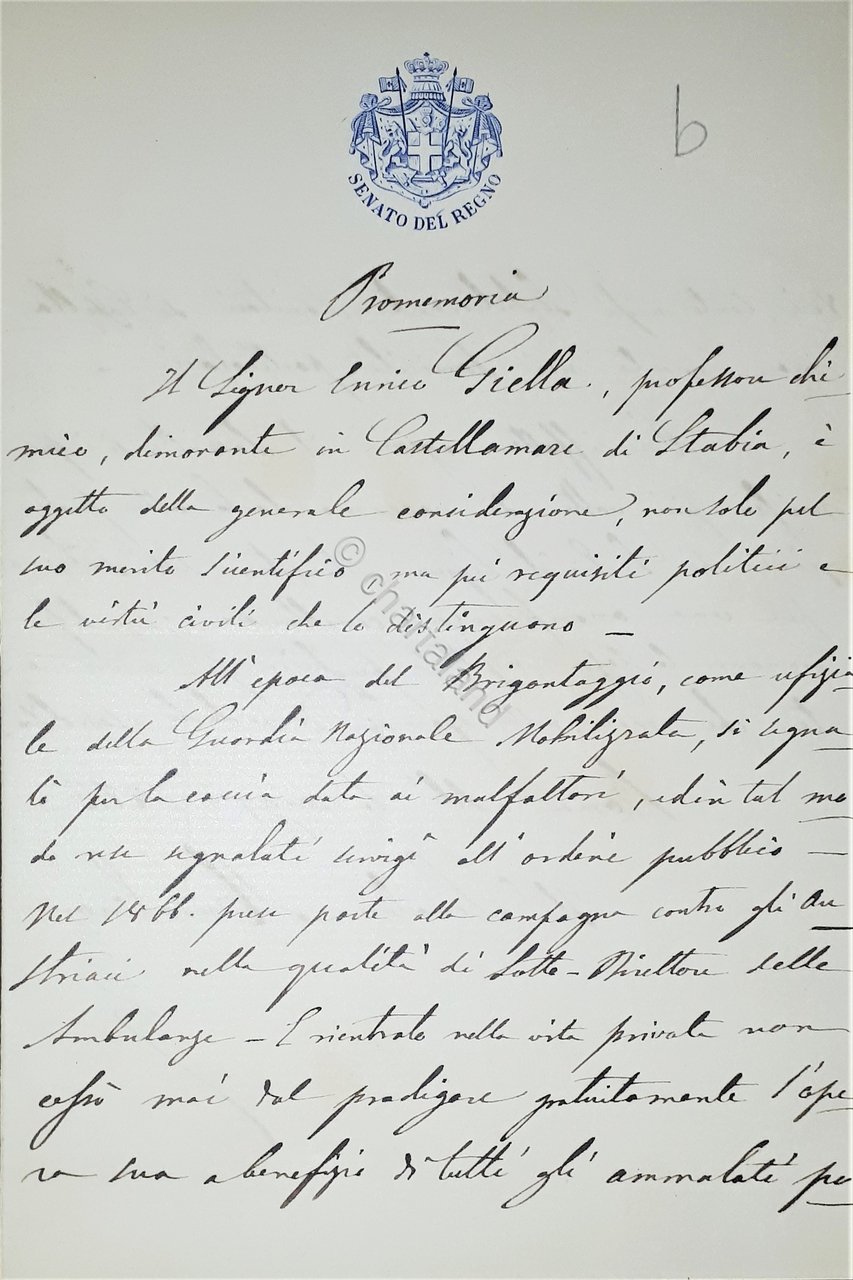 b
SENATO DEL REGNO
Promemoria
Il Signor Enrico Giella, professore chi-
mico, dimorante in Castellamare di Stabia, è
oggetto della generale considerazione, non solo pel
suo merito scientifico, ma pei requisiti politici e
le virtù civili che lo distinguono —
All'epoca del Brigantaggio, come ufizia-
le della Guardia Nazionale Mobilizzata, si segna-
lò per la caccia data ai malfattori, ed in tal mo-
do rese segnalati servigi all'ordine pubblico —
Nel 1866. prese parte alla campagna contro gli Au-
striaci nella qualità di Sotto-Direttore delle
Ambulanze — E rientrato nella vita privata non
cessò mai dal prodigare gratuitamente l'ope-
ra sua a benefizio di tutti gli ammalati po-
© chartaland